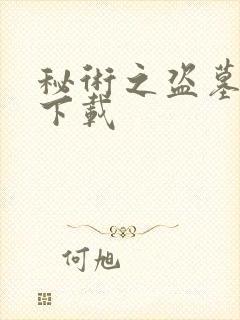 秘術之盗墓
下載
何旭